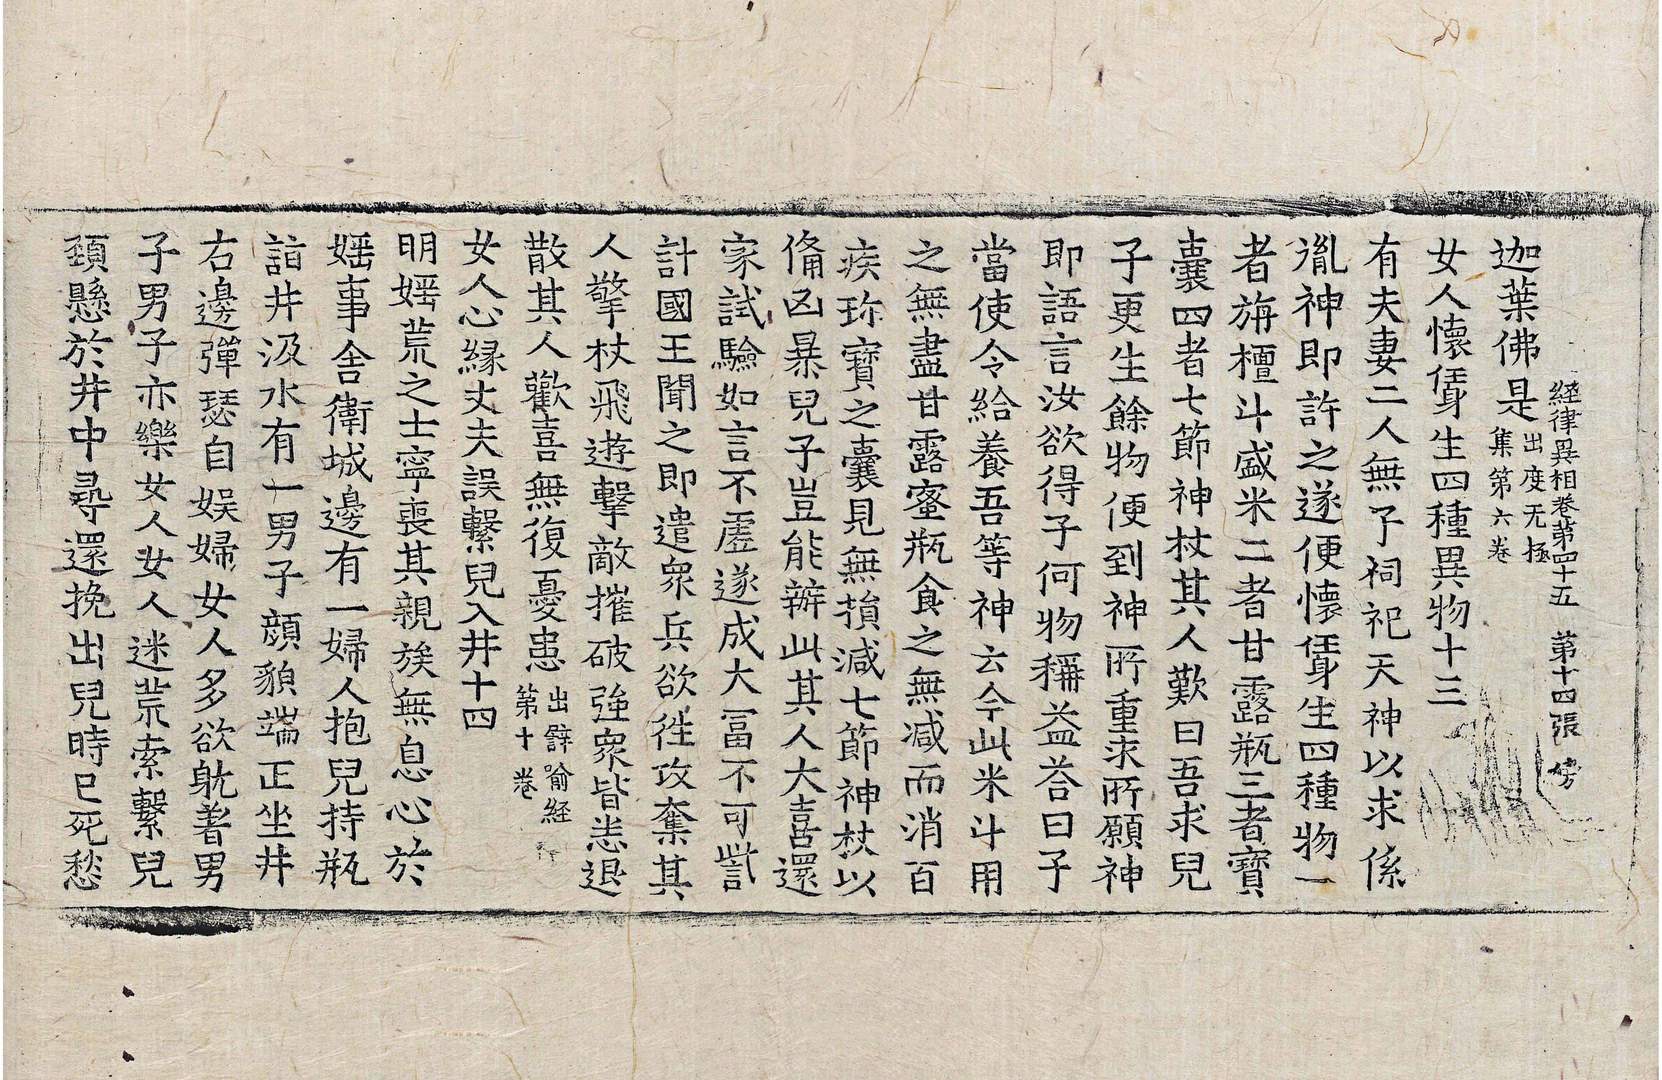 經律異相卷第四十五　第十四張　傍
迦葉佛是出度无極集第六卷
女人懷㑗身生四種異物十三
有夫妻二人無子祠祀天神以求係
胤神即許之遂便懷㑗身生四種物一
者旃檀斗盛米二者甘露瓶三者寶
囊四者七節神杖其人歎曰吾求兒
子更生餘物便到神所重求所願神
即語言汝欲得子何物稱益荅曰子
當使令給養吾等神云今此米斗用
之無盡甘露蜜瓶食之無减而消百
疾珎寶之囊見無損減七節神杖以
俻凶暴兒子豈能辦此其人大喜還
家試驗如言不虛遂成大冨不可訾
計國王聞之即遣衆兵欲徃攻奪其
人擎杖飛遊擊敵摧破強衆皆悉退
散其人歡喜無復憂患出譬喻經第十卷
女人心緣丈夫誤繫兒入井十四
明婬荒之士寧喪其親族無息心於
婬事舍衛城邊有一婦人抱兒持瓶
詣井汲水有一男子顔貌端正坐井
右邊彈瑟自娱婦女人多欲躭著男
子男子亦樂女人女人迷荒索繫兒
頚懸於井中尋還挽出兒時已死愁